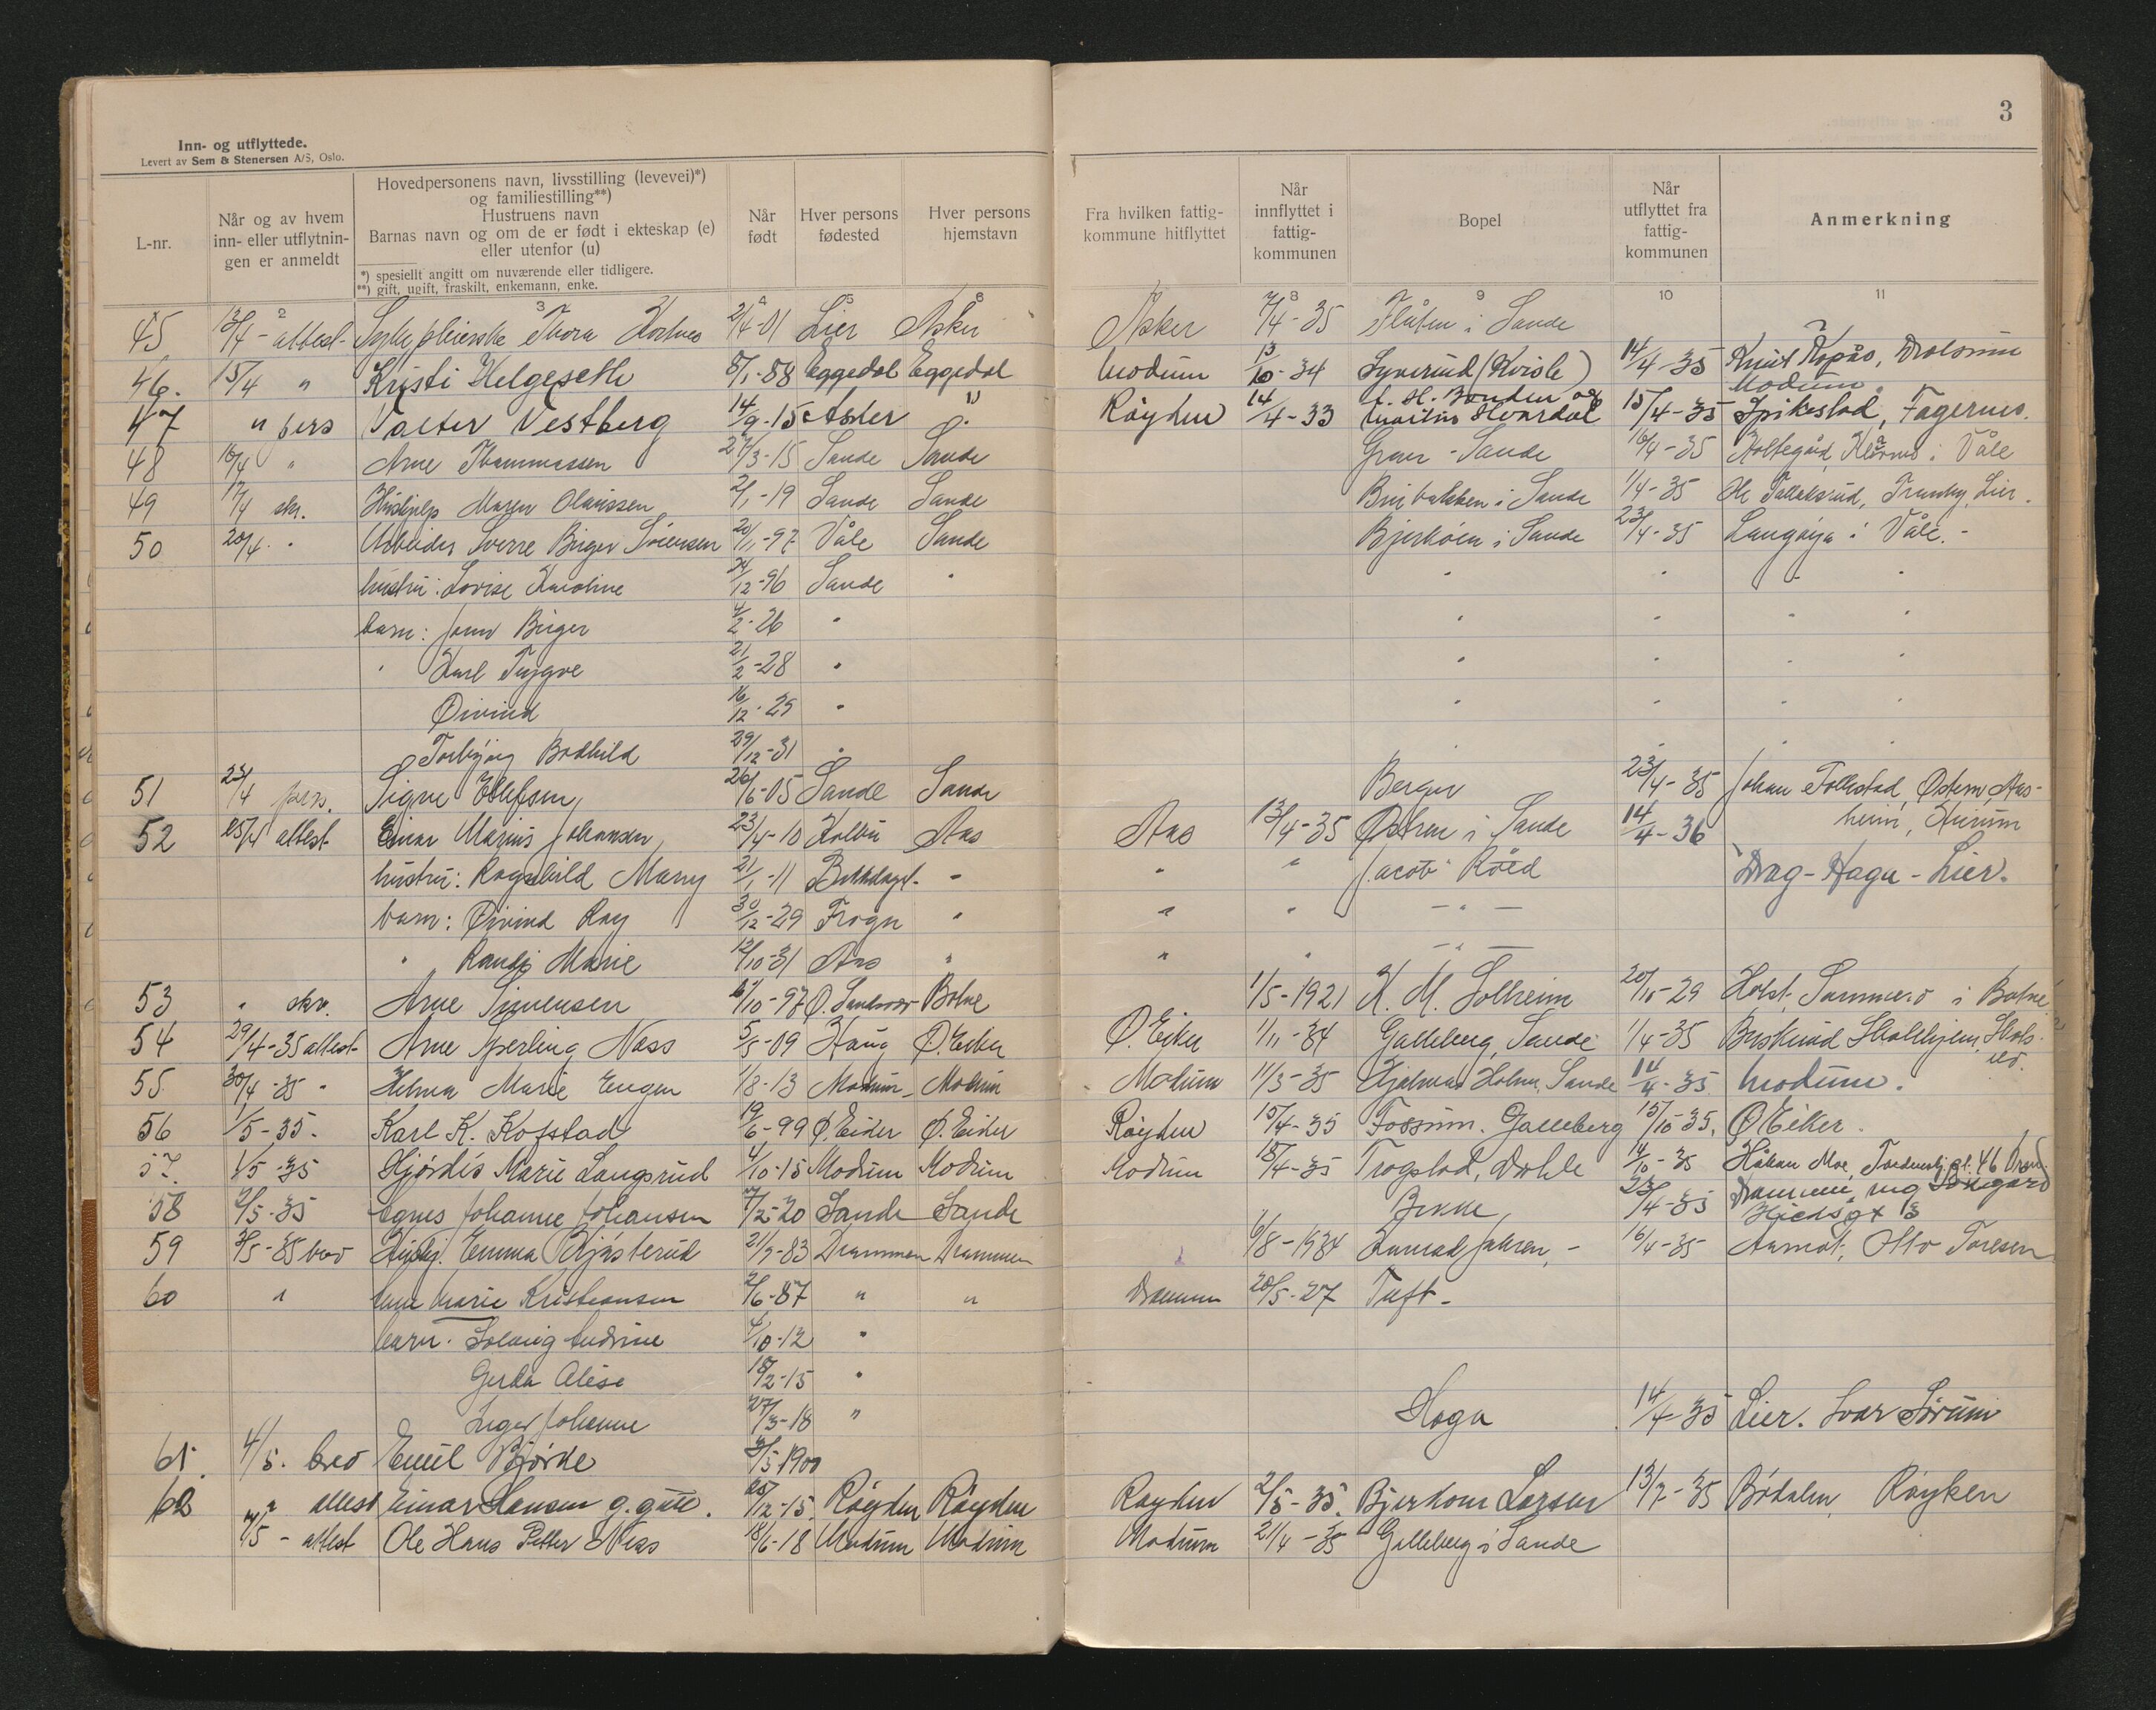 3
Inn- og utflyttede.
Levert av Sem & Stenersen A/S, Oslo.
L-nr.
Når og av hvem inn- eller utflytnin-gen er anmeldt
Hovedpersonens navn, livsstilling (levevei)*) og familiestilling**)
Hustruens navn
Barnas navn og om de er født i ekteskap (e) eller utenfor (u)
*) spesiellt angitt om nuværende eller tidligere.
**) gift, ugift, fraskilt, enkemann, enke.
Når født
Hver persons fødested
Hver persons hjemstavn
Fra hvilken fattig-kommune hitflyttet
Når innflyttet i fattig-kommunen
Bopel
Når utflyttet fra fattig-kommunen
Anmerkning
2 3 8 9 10 11
45 13/4 - attest- Sykepleierske Thora 2/4-01 Lier Asker Asker 7/4-35 Flåten i Sande
46. 15/4 " Kristi Helgeseth 8/1-88 Eggedal Eggedal Modum 13/10-34 Syverud (Kvisle) 14/4-35 Knut Kopås, Drolsum Modum.
47 " pers Valter Vestberg 14/9-15 Asker " Røyken 14/4-33 Martin Hvardal 15/4-35 Spikestad, Fagernes.
48 16/4 " Arne Thommassen 27/3-15 Sande Sande Grav - Sande 16/4-35 Holtegård, i Våle
49 17/4 skr. Hushjelp Maren Olaussen 2/1-19 Sande Sande i Sande 1/4-35 Tranby, Lier.
50 20/4 " Arbeider Sverre Birger Sørensen 20/11-97 Våle Sande Bjerkøen i Sande 23/4-35 Langøya i Våle.-
hustru: Lovise Karoline 24/12-96 Sande "
barn: Birger 4/2-26 "
" Karl Trygve 21/2-28 "
Øivind 16/12-29 "
Torbjørg Bodhild 29/12-31 "
51 23/4 pers. Signe Ellefsen, 26/6-05 Sande Sande Berger 23/4-35 Johan Follestad, Østern, Aas-heim, Hurum
52 25/4 attest Einar Marius Johansen, 23/4-10 Kolbu Aas Aas 13/4-35 Østre i Sande 14/4-36
hustru: Ragnhild Mary 21/1-11 Bekkelaget - " " Jacob Røed Drag-Haga-Lier.
barn: Øivind Roy 30/12-29 Frogn " " " - " -
" Randi Marie 12/10-31 Aas " " " - " -
53 " skr. Arne Simensen 6/10-97 Ø. Sandsvær Botne 1/5-1921 K. M. Solheim 20/11-29 Holst, i Botne
54 29/4-35 attest- Arne Sperling Næss 5/5-09 Haug Ø. Eiker Ø. Eiker 1/11-34 Galleberg, Sande 1/4-35 Buskerud
55 30/4-35 " Helma Marie Engen 1/8-13 Modum - Modum Modum 11/3-35 Hjalmar Holm, Sande 14/4-35 Modum.
56 1/5-35. Karl K. Kofstad 19/6-99 Ø. Eiker Ø. Eiker Røyken 15/4-35 Fossum. Galleberg 15/10-35. Ø Eiker.
57. 1/5-35 Hjørdis Marie Langsrud 4/10-15 Modum Modum Modum 18/4-35 Trogstad, Dahle 14/10-35 Håkon Moe, 46 Dram.
58 2/5-35 Agnes Johanne Johansen 7/2-20 Sande Sande Bekke, 23/4-35 Drammen
59 3/5-35 brev Hushj. Emma Kjøsterud 21/9-83 Drammen Drammen 6/8-1934 16/4-35 Aamot, Otto Toresen
60 " Marie Kristiansen 2/6-87 " " Drammen 20/5-27 Tuft-
barn. Solveig Andrine 4/10-12 "
Gerda Alise 18/2-15 "
Inger Johanne 27/3-18 "
Haga 14/4-35 Lier. Ivar Sørum
61. 4/5. brev Emil Bjørke 3/5-1900
62 " attest Einar Hansen g. gutt. 25/12-15 Røyken Røyken Røyken 2/5-35. Larsen 13/7-35 Bødalen, Røyken
7/5 - attest Ole Hans Petter Ness 18/6-18 Modum Modum Modum 21/4-35 Galleberg i Sande